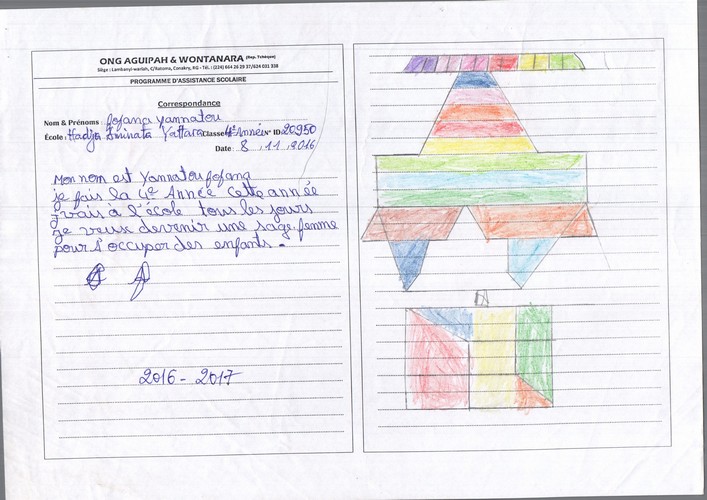 ONG AGUIPAH & WONTANARA (Rep. Tchèque)
Siège : Lambanyi-wariah, C/Ratoma, Conakry, RG - Tél. : (224) 664 26 29 37/624 031 338
PROGRAMME D'ASSISTANCE SCOLAIRE
Correspondance
Nom & Prénoms : fofana yannatou
École : Hadja Aminata Yattara Classe 4e Année N° ID 20950
Date : 8 . 11 . 2016
Mon nom est Yannatou fofana
je fais la 4e Année cette année
j'vais à l'école tous les jours
je veux devenir une sage femme
pour s'occuper des enfants.
2016 - 2017